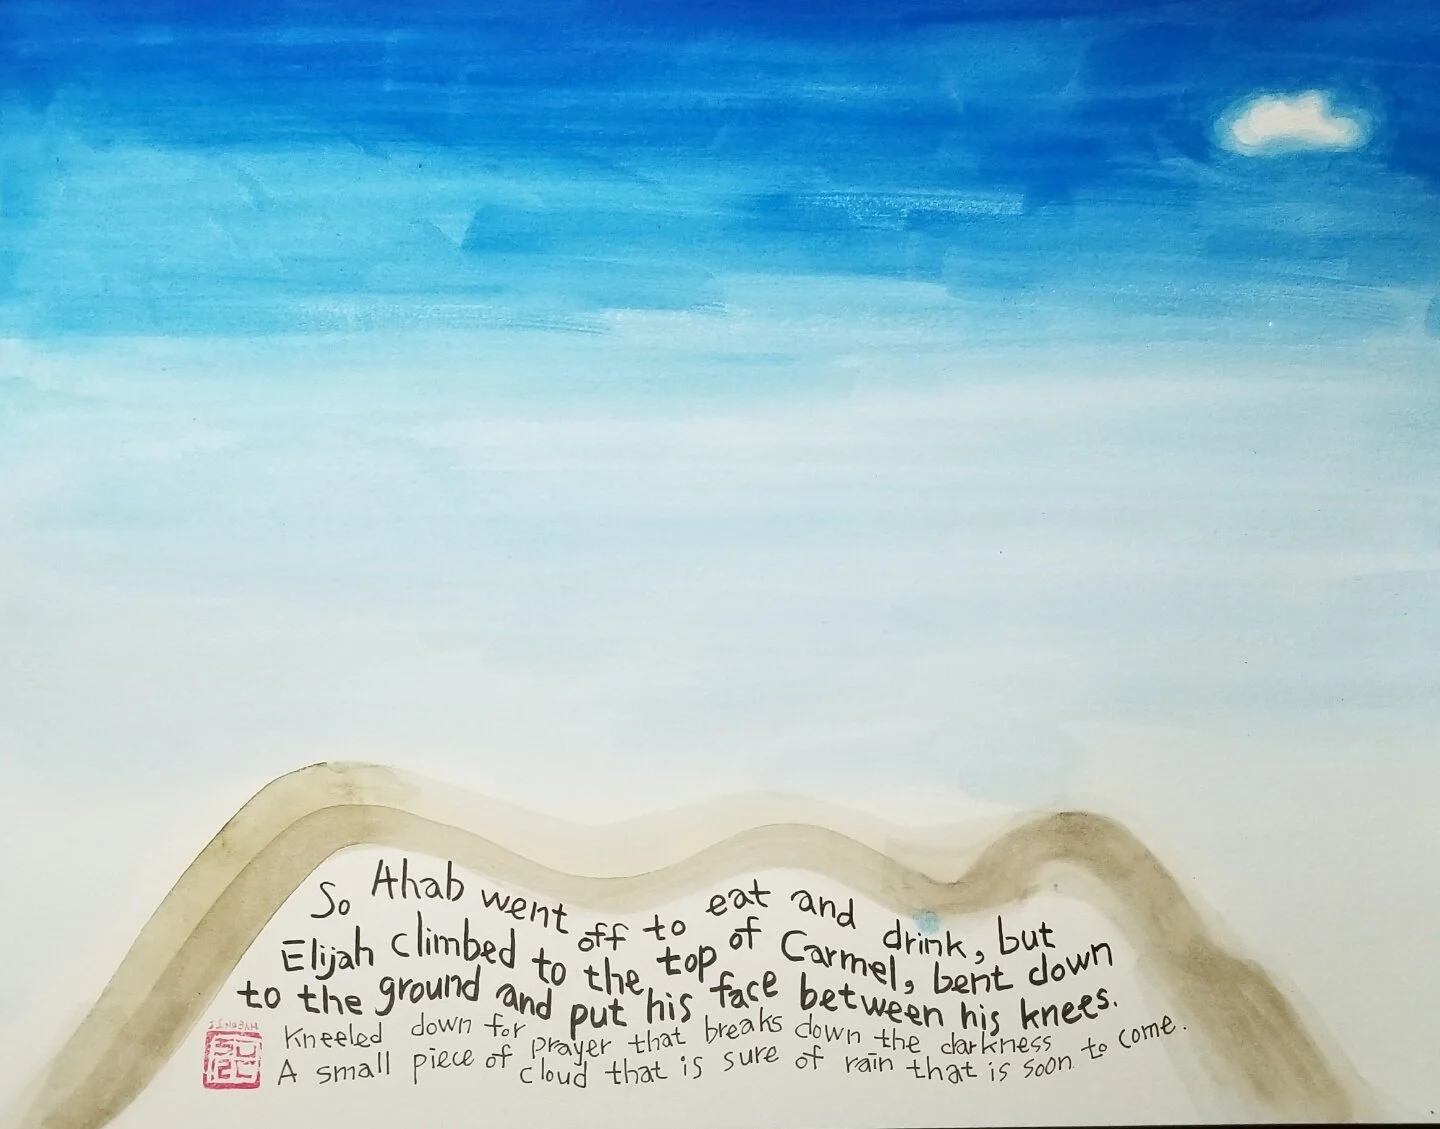 So Ahab went off to eat and drink, but
Elijah climbed to the top of Carmel, bent down
to the ground and put his face between his knees.
Kneeled down for prayer that breaks down the darkness
A small piece of cloud that is sure of rain that is soon to come.